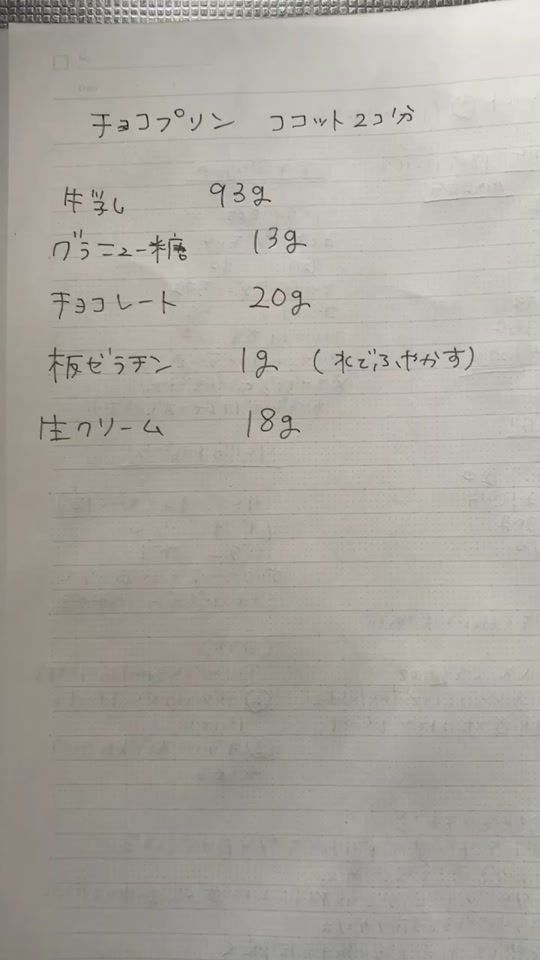 チョコプリン ココット2コ分
牛乳 93g
グラニュー糖 13g
チョコレート 20g
板ゼラチン 1g (水でふやかす)
生クリーム 18g